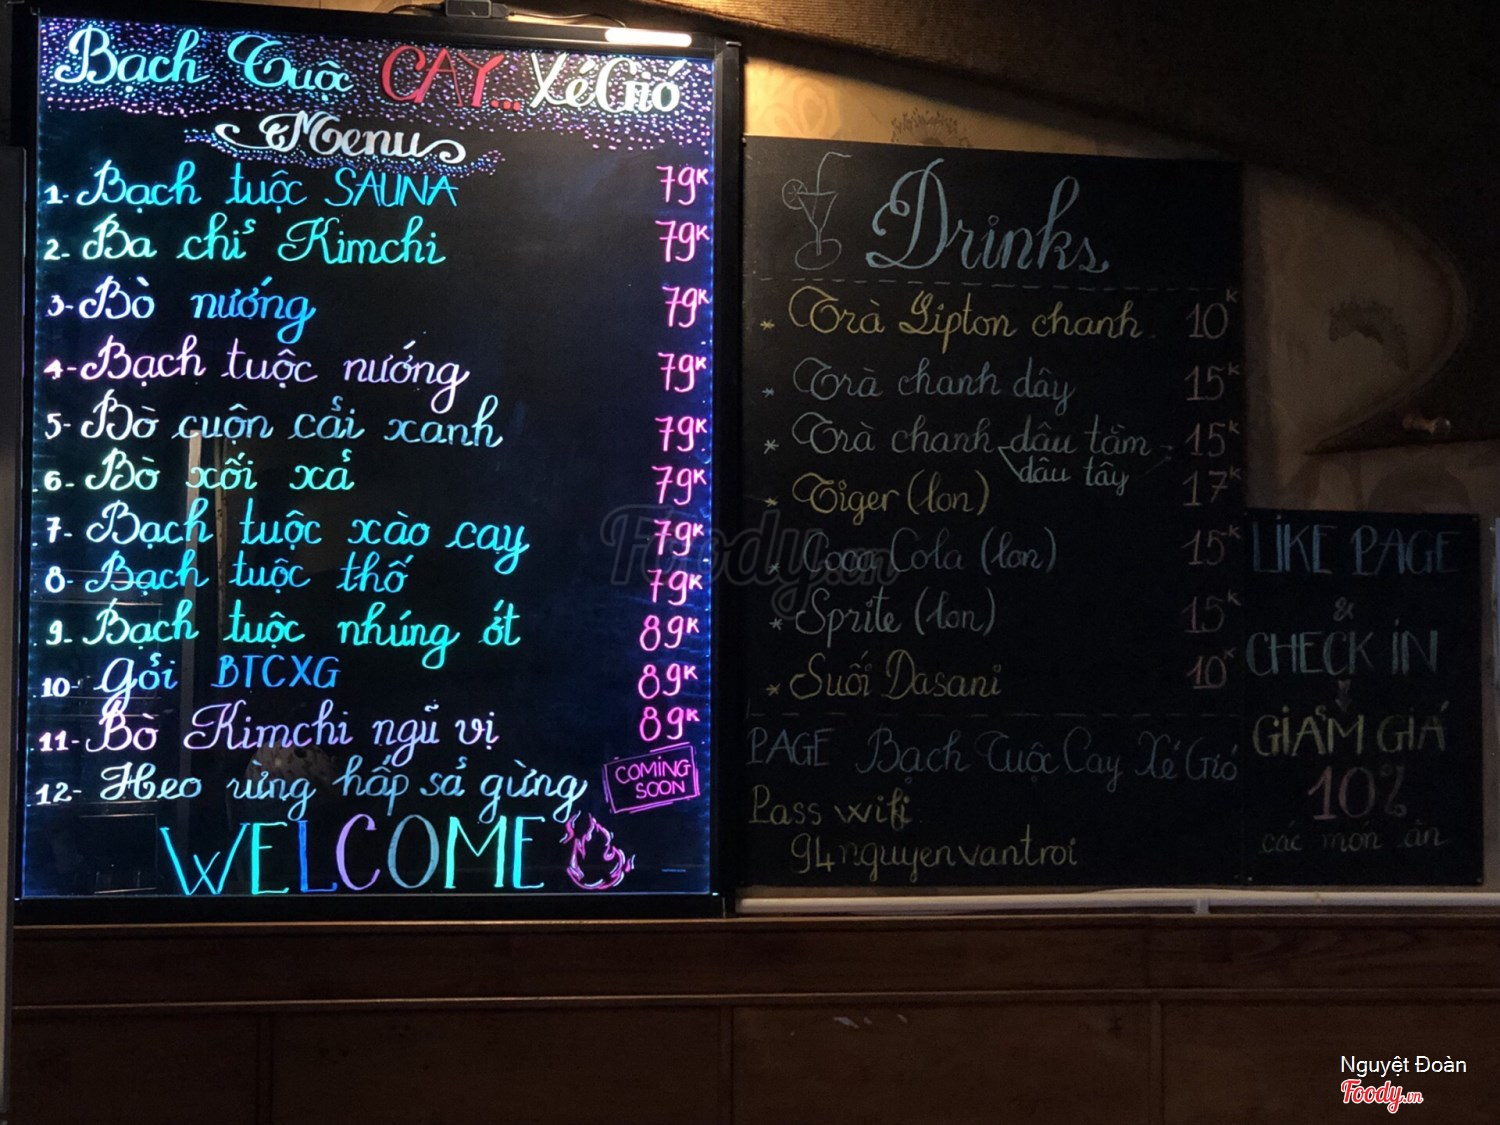 Bạch Tuộc CAY... Xé Gió
Menu
1- Bạch tuộc SAUNA 79K
2- Ba chỉ Kimchi 79K
3- Bò nướng 79K
4- Bạch tuộc nướng 79K
5- Bò cuộn cải xanh 79K
6- Bò xối xả 79K
7- Bạch tuộc xào cay 79K
8- Bạch tuộc thố 79K
9- Bạch tuộc nhúng ớt 89K
10- Gỏi BTCXG 89K
11- Bò Kimchi ngũ vị 89K
12- Heo rừng hấp sả gừng COMING SOON
WELCOME
Drinks
* Trà Lipton chanh 10K
* Trà chanh dây 15K
* Trà chanh dâu tằm - 15K
dâu tây
* Tiger (lon) 17K
* Coca Cola (lon) 15K
* Sprite (lon) 15K
* Suối Dasani 10K
PAGE Bạch Tuộc Cay Xé Gió
Pass wifi
94nguyenvantroi
LIKE PAGE
&
CHECK IN
GIẢM GIÁ
10%
các món ăn
Foody.vn
Nguyệt Đoàn
Foody.vn